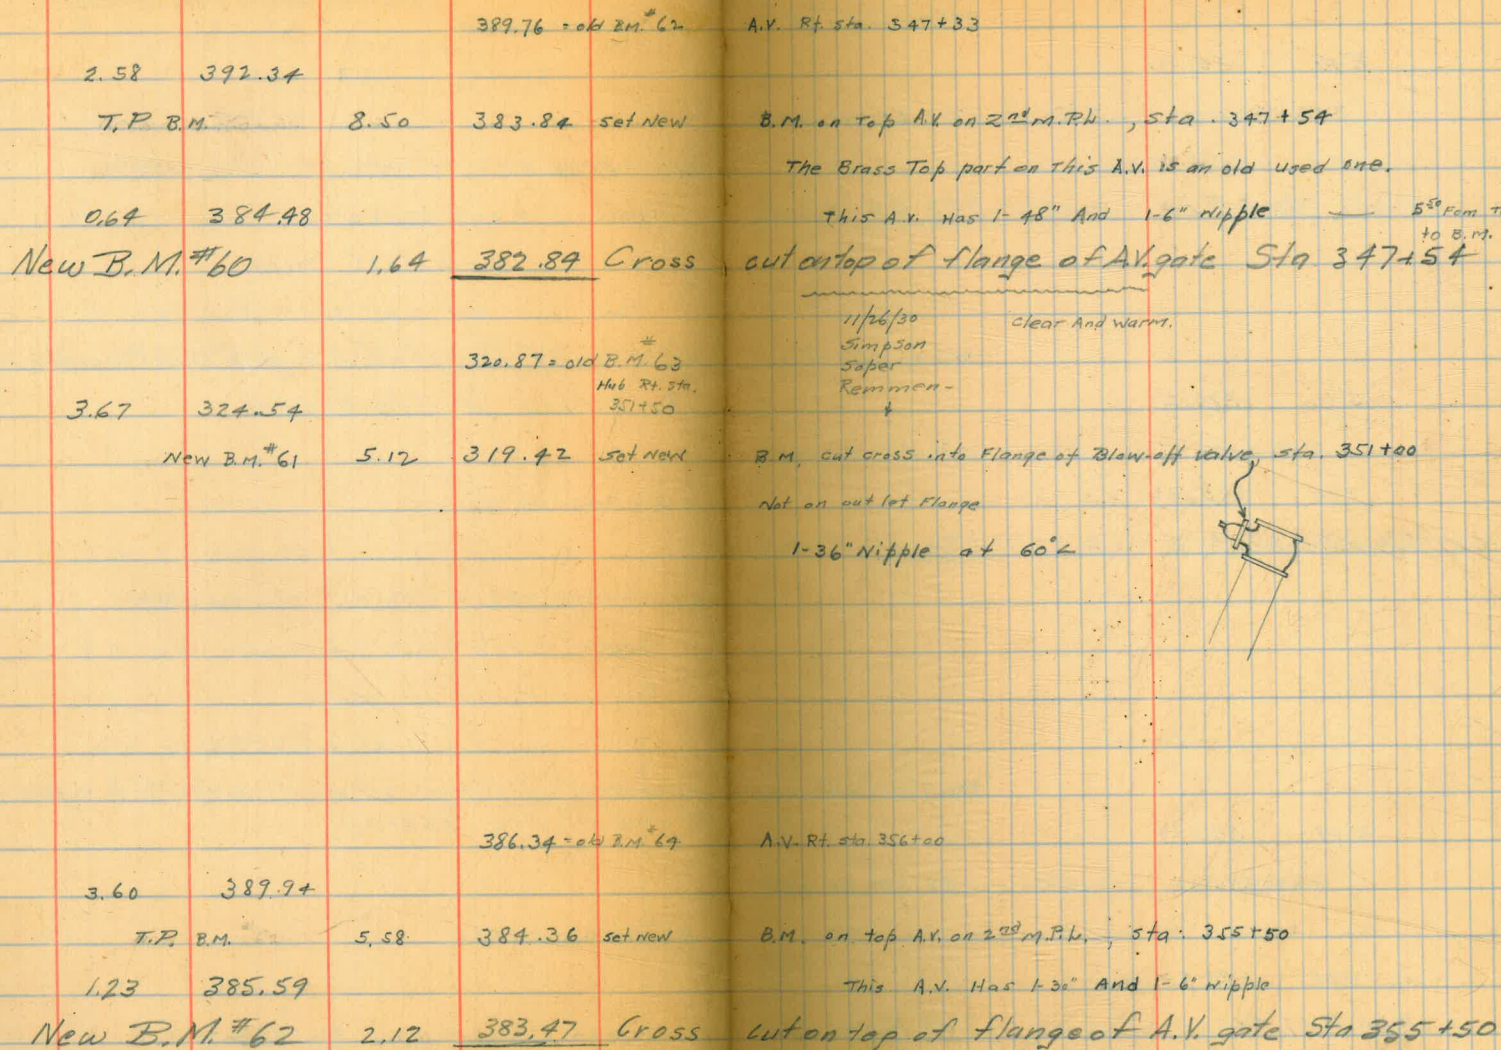 389.76 = old B.M. #62 A.V. Rt. sta. 347+33
2.58 392.34
T.P. B.M. 8.50 383.84 set New B.M. on Top A.V. on 2nd M.P.L., sta. 347+54
The Brass Top part on This A.V. is an old used one.
0.64 384.48 This A.V. Has 1-48" And 1-6" Nipple — 5.50 Fom T
to B.M.
New B.M. #60 1.64 382.84 Cross cut on top of flange of A.V. gate Sta 347+54
11/26/30 Clear And Warm.
Simpson
320.87 = old B.M. #63 Soper
Hub Rt. Sta. Remmen-
3.67 324.54 351+50
New B.M. #61 5.12 319.42 set New B.M. cut cross into Flange of Blow-off valve, sta. 351+00
Not on out let Flange
1-36" Nipple at 60°∠
386.34 = old B.M. #64 A.V. Rt. sta. 356+00
3.60 389.94
T.P. B.M. 5.58 384.36 set new B.M. on top A.V. on 2nd M.P.L., sta. 355+50
1.23 385.59 This A.V. Has 1-30" And 1-6" Nipple
New B.M. #62 2.12 383.47 Cross cut on top of flange of A.V. gate Sta 355+50